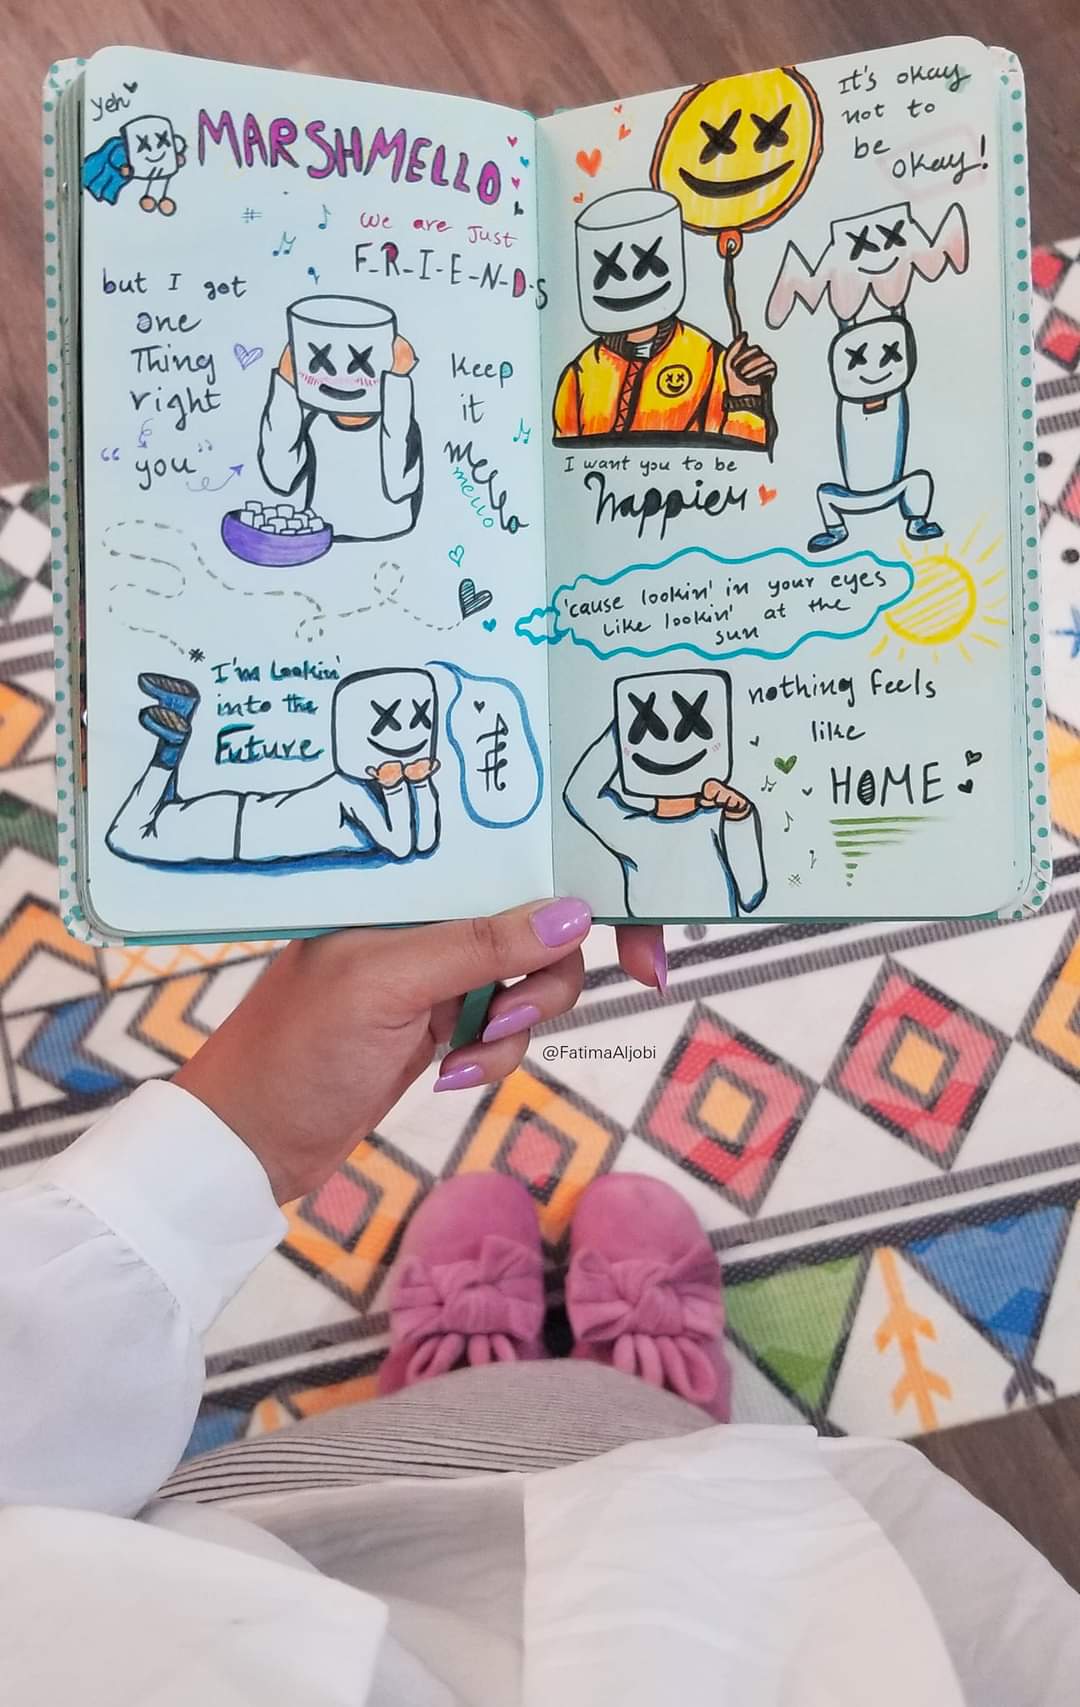 yeh
MARSHMELLO
we are just
F-R-I-E-N-D-S
but I got
one
Thing
right
"you"
Keep
it
mello
mello
I'm Lookin'
into the
Future
It's okay
not to
be
okay!
I want you to be
happier
'cause lookin' in your eyes
like lookin' at the
sun
nothing feels
like
HOME
@FatimaAljobi